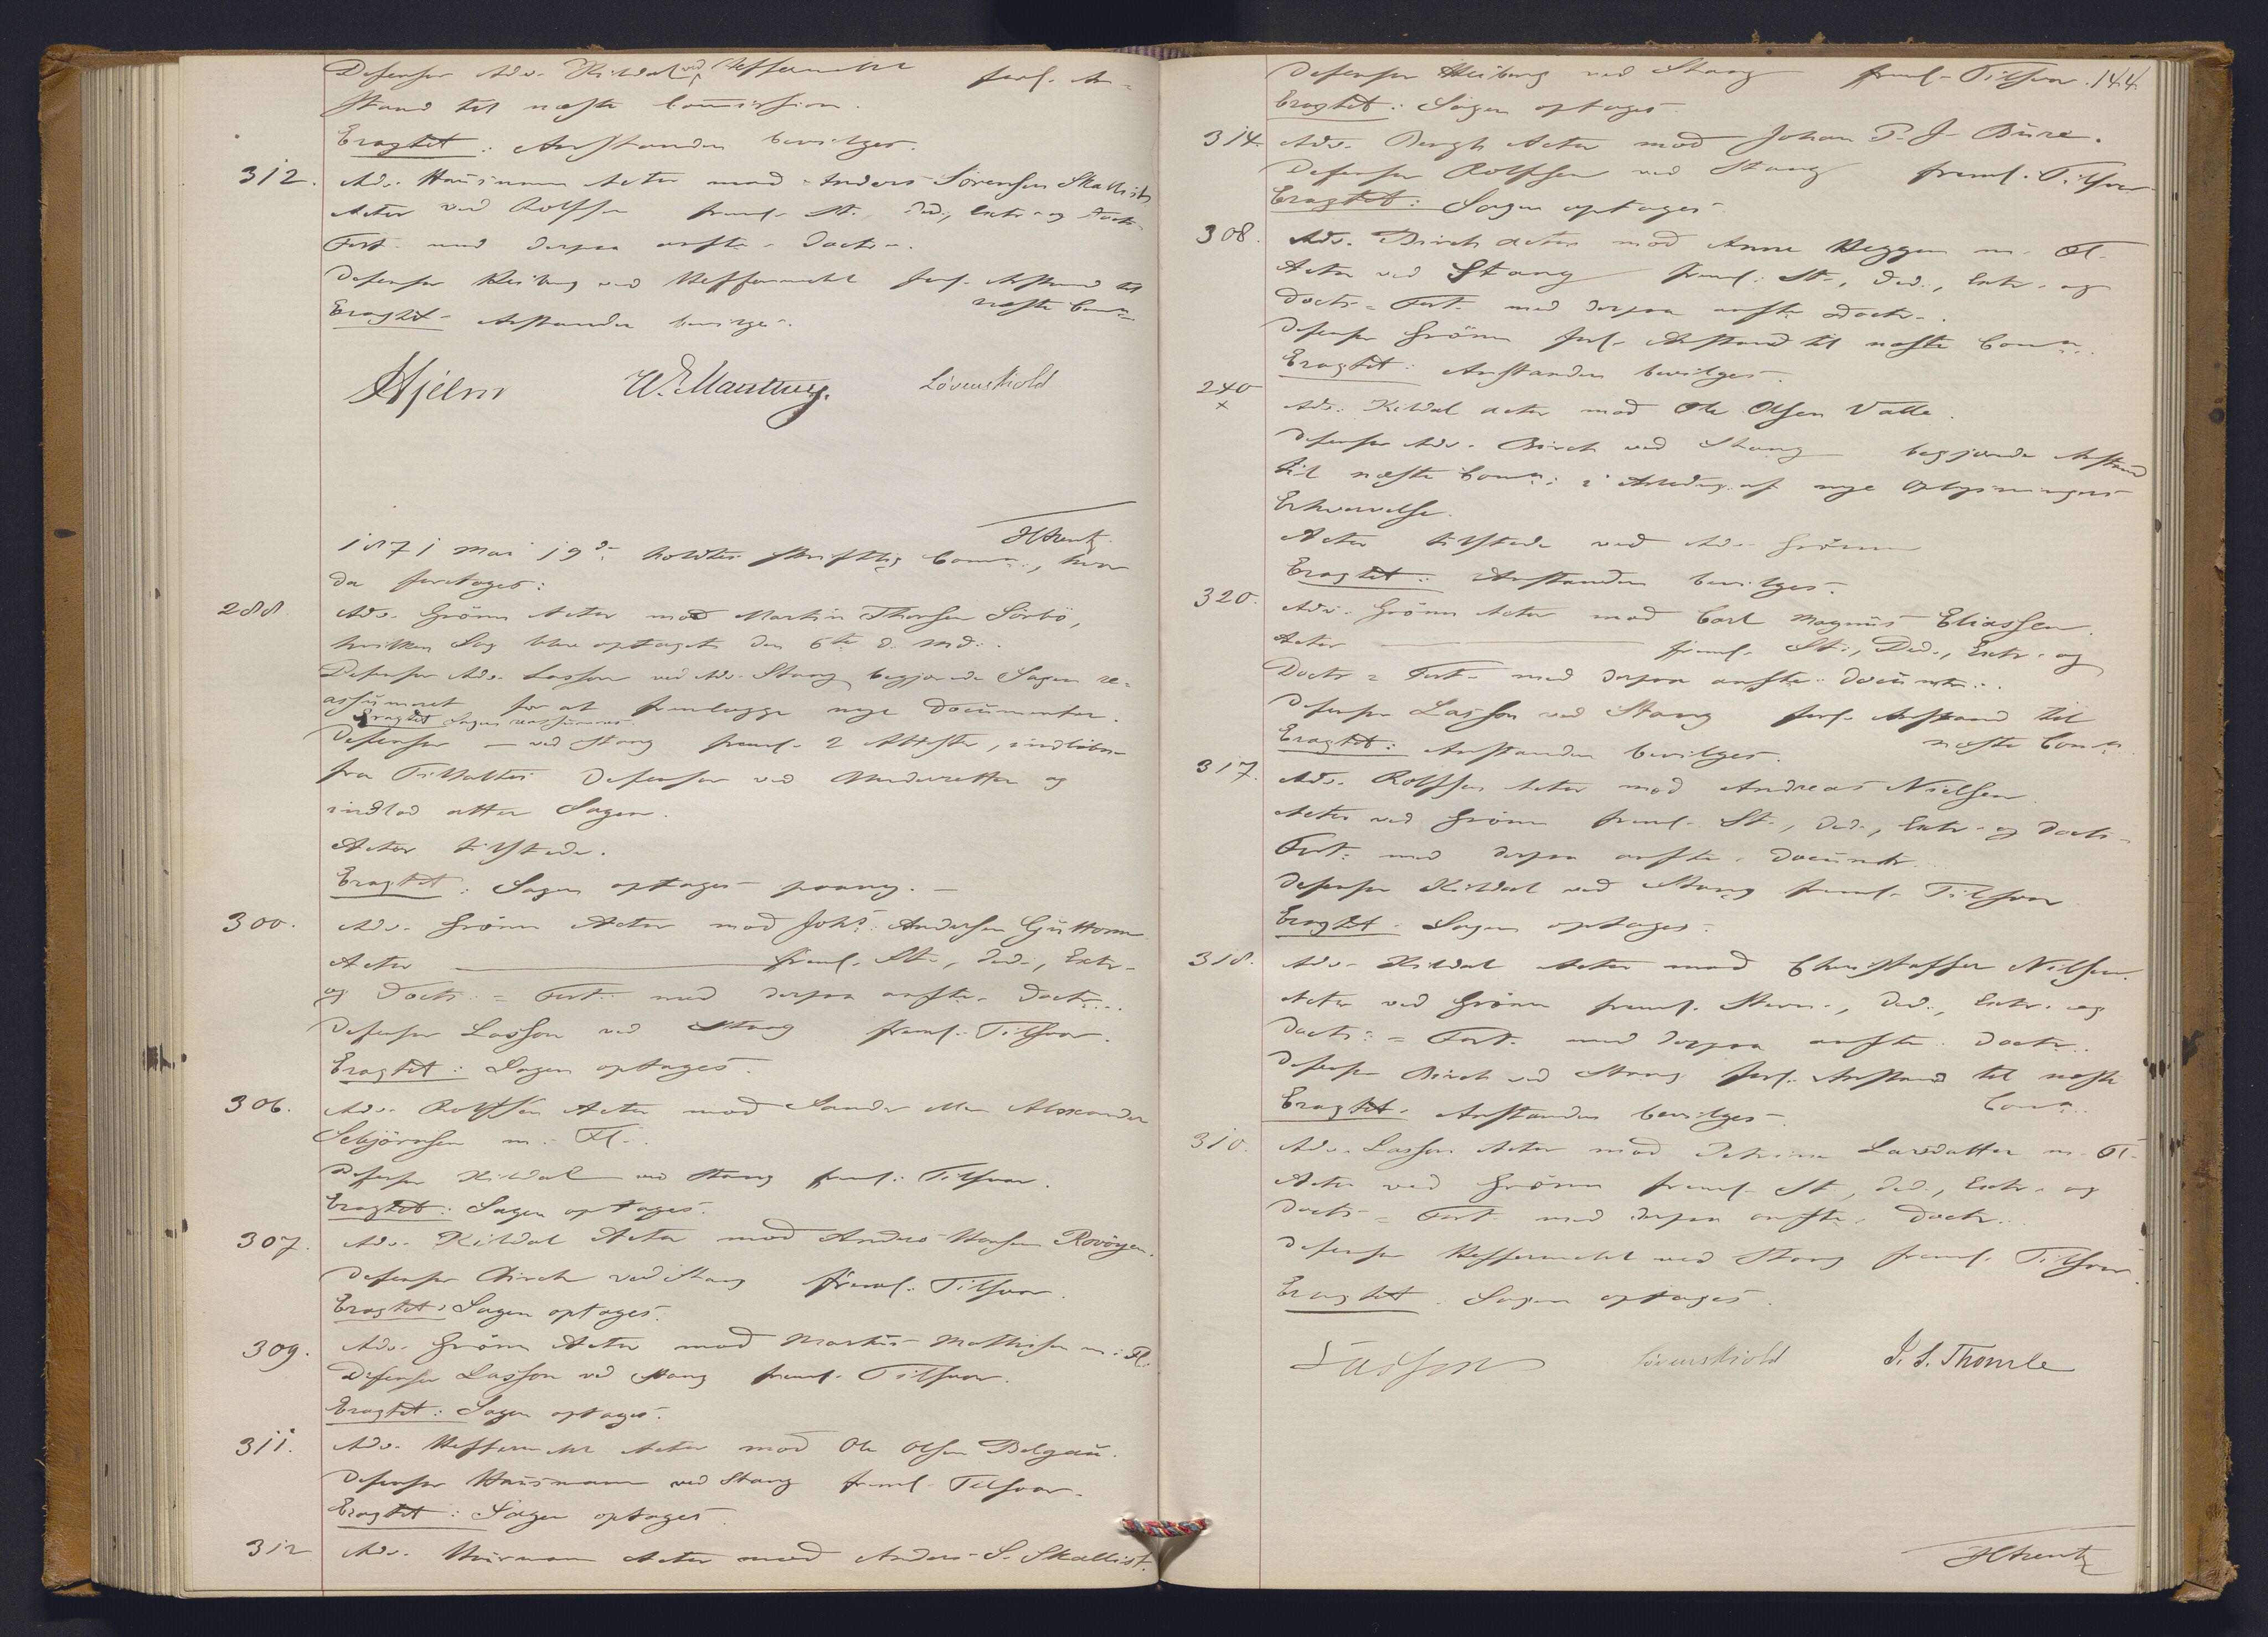 Defensor Adv. Kildal ved Heffermehl forl. An-
stand til næste Commission.
Eragtet: Anstanden bevilges.
312. Adv. Hausmann Actor mod Anders Sörensen Skallist
Actor ved Rolfsen freml. St., Ded., Extr. og Doctr.
Fort. med derpaa anførte Doctr.
Defensor Heiberg ved Heffermehl forl. Anstand til
næste Comn.
Eragtet Anstanden bevilges.
Hjelm Løvenskiold
HArentz
1871 Mai 19de holdtes skriftlig Comn., hvor
da foretoges:
288. Adv. Grönn Actor mod Martin Thorsen Sörbö,
hvilken Sag blev optaget den 6te d. Md.
Defensor Adv. Lasson ved Adv. Stang begjærede Sagen re-
assumeret for at fremlægge nye Documenter.
Eragtet Sagen reassumeres.
Defensor — ved Stang freml. 2 Attester, indløbne
fra Tiltaltes Defensor ved Underretten og
indlod atter Sagen.
Actor tilstede.
Eragtet: Sagen optages paany. —
300. Adv. Grönn Actor mod Johs. Andersen Guttorm
Actor — freml. St., Ded., Extr.
og Doctr. = Fort. med derpaa anførte Doctr.
Defensor Lasson ved Stang freml. Tilsvar.
Eragtet: Sagen optages.
306. Adv. Rolfsen Actor mod Sander eller Alexander
Sebjörnsen m. Fl.
Defensor Kildal ved Stang freml. Tilsvar.
Eragtet: Sagen optages.
307. Adv. Kildal Actor mod Anders Hansen Rovöyen.
Defensor Birch ved Stang freml. Tilsvar.
Eragtet: Sagen optages.
309. Adv. Grönn Actor mod Martin Mathisen m. Fl.
Defensor Lasson ved Stang freml. Tilsvar.
Eragtet: Sagen optages.
311. Adv. Heffermehl Actor mod Ole Olsen Belgau.
Defensor Hausmann ved Stang freml. Tilsvar.
Eragtet: Sagen optages.
312 Adv. Hausmann Actor mod Anders S. Skallist.
Defensor Heiberg ved Stang freml. Tilsvar. 144.
Eragtet: Sagen optages.
314. Adv. Bergh Actor mod Johan P. J. Bure.
Defensor Rolfsen ved Stang freml. Tilsvar
Eragtet: Sagen optages.
308. Adv. Birch Actor mod Anne Heggen m. Fl.
Actor ved Stang freml. St., Ded., Extr. og
Doctr. = Fort. med derpaa anførte Doctr.
Defensor Grönn forl. Anstand til næste Comn.
Eragtet: Anstanden bevilges.
240 Adv. Kildal Actor mod Ole Olsen Valle.
x
Defensor Adv. Birch ved Stang begjærede Anstand
til næste Comn. i Anledng. af nye Oplysningers
Erhvervelse.
Actor tilstede ved Adv. Grönn
Eragtet: Anstanden bevilges.
320. Adv. Grönn Actor mod Carl Magnus Eliassen.
Actor — freml. St., Ded., Extr. og
Doctr = Fort. med derpaa anførte Documtr.
Defensor Lasson ved Stang forl. Anstand til
næste Comn.
Eragtet: Anstanden bevilges.
317. Adv. Rolfsen Actor mod Andreas Nielsen.
Actor ved Grönn freml. St., Ded., Extr. og Doctr.
Fort. med derpaa anførte Documtr.
Defensor Kildal ved Stang freml. Tilsvar
Eragtet. Sagen optages.
318. Adv. Kildal Actor mod Christoffer Nilsen.
Actor ved Grönn freml. Stevn., Ded., Extr. og
Doctr. = Fort. med derpaa anførte Doctr.
Defensor Birch ved Stang forl. Anstand til næste
Comn.
Eragtet. Anstanden bevilges.
310. Adv. Lasson Actor mod Petrine Larsdatter m. Fl.
Actor ved Grönn freml. St, Ded., Extr. og
Doctr. = Fort. med derpaa anførte Doctr.
Defensor Heffermehl ved Stang freml. Tilsvar.
Eragtet. Sagen optages.
Løvenskiold J. L. Thomle
HArentz